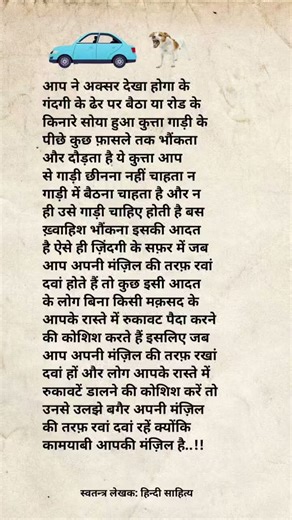 आप ने अक्सर देखा होगा के
गंदगी के ढेर पर बैठा या रोड के
किनारे सोया हुआ कुत्ता गाड़ी के
पीछे कुछ फ़ासले तक भौंकता
और दौड़ता है ये कुत्ता आप
से गाड़ी छीनना नहीं चाहता न
गाड़ी में बैठना चाहता है और न
ही उसे गाड़ी चाहिए होती है बस
ख़्वाहिश भौंकना इसकी आदत
है ऐसे ही ज़िंदगी के सफ़र में जब
आप अपनी मंज़िल की तरफ़ रवां
दवां होते हैं तो कुछ इसी आदत
के लोग बिना किसी मक़सद के
आपके रास्ते में रुकावट पैदा करने
की कोशिश करते हैं इसलिए जब
आप अपनी मंज़िल की तरफ़ रखां
दवां हों और लोग आपके रास्ते में
रुकावटें डालने की कोशिश करें तो
उनसे उलझे बगैर अपनी मंज़िल
की तरफ़ रवां दवां रहें क्योंकि
कामयाबी आपकी मंज़िल है..!!
स्वतन्त्र लेखक: हिन्दी साहित्य